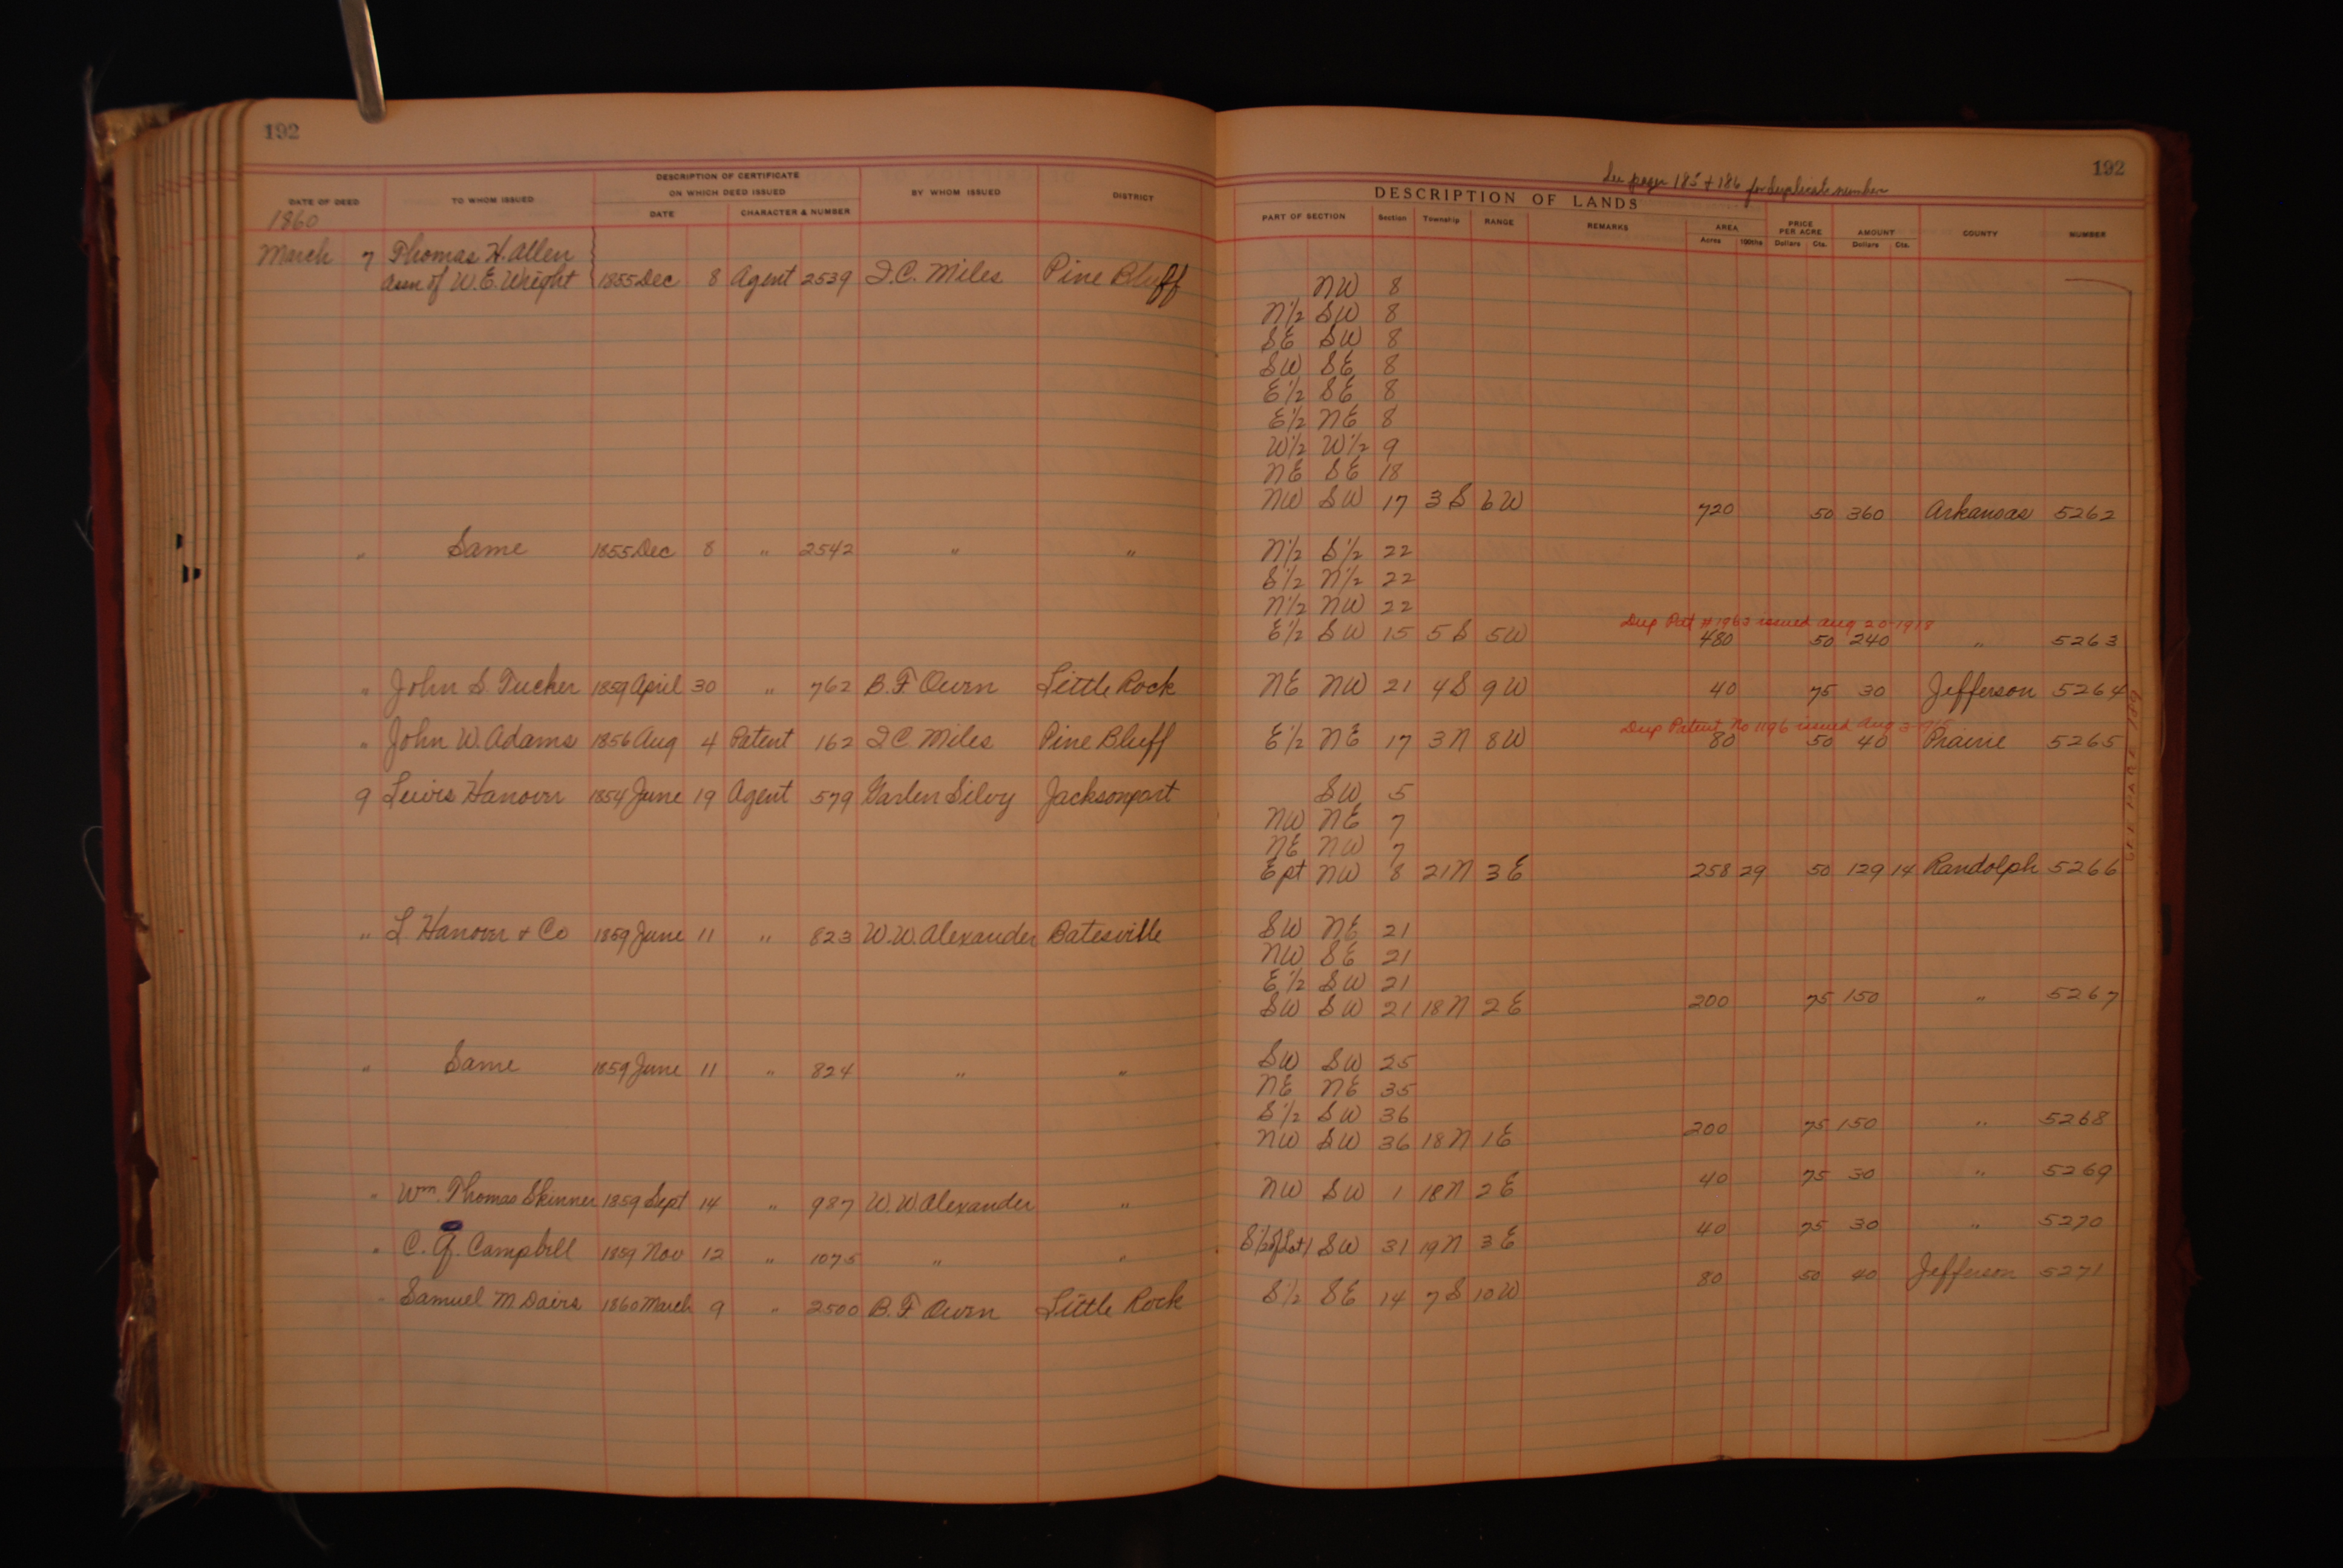 192
DESCRIPTION OF CERTIFICATE
ON WHICH DEED ISSUED
DATE OF DEED TO WHOM ISSUED DATE CHARACTER & NUMBER BY WHOM ISSUED DISTRICT
1860
March 7 Thomas H. Allen
assn of W. E. Wright 1855 Dec 8 Agent 2539 I. C. Miles Pine Bluff
" Same 1855 Dec 8 " 2542 " "
" John S. Tucker 1859 April 30 " 762 B. F. Owen Little Rock
" John W. Adams 1856 Aug 4 Patent 162 I C Miles Pine Bluff
9 Lewis Hanover 1854 June 19 Agent 579 Garlen Silvy Jacksonport
" L Hanover & Co 1859 June 11 " 823 W. W. Alexander Batesville
" Same 1859 June 11 " 824 " "
" Wm. Thomas Skinner 1859 Sept 14 " 987 W. W. Alexander "
" C. Campbell 1859 Nov 12 " 1075 " "
" Samuel M Davis 1860 March 9 " 2500 B. F Owen Little Rock
192
See pages 185 & 186 for duplicate number
DESCRIPTION OF LANDS
PART OF SECTION Section Township RANGE REMARKS AREA PRICE PER ACRE AMOUNT COUNTY NUMBER
Acres 100ths Dollars Cts. Dollars Cts.
NW 8
N1/2 SW 8
SE SW 8
SW SE 8
E1/2 SE 8
E1/2 NE 8
W1/2 W1/2 9
NE SE 18
NW SW 17 3 S 6 W 720 50 360 Arkansas 5262
N1/2 S1/2 22
S1/2 N1/2 22
N1/2 NW 22
Dup Pat # 1963 issued Aug 20-1918
E1/2 SW 15 5 S 5W 480 50 240 " 5263
NE NW 21 4S 9 W 40 75 30 Jefferson 5264
Dup Patent No 1196 issued Aug
E1/2 NE 17 3 N 8W 80 50 40 Prairie 5265
SW 5
NW NE 7
NE NW 7
E pt NW 8 21 N 3 E 258 29 50 129 14 Randolph 5266
SW NE 21
NW SE 21
E1/2 SW 21
SW SW 21 18 N 2 E 200 75 150 " 5267
SW SW 25
NE NE 35
S1/2 SW 36
NW SW 36 18 N 1 E 200 75 150 " 5268
NW SW 1 18 N 2 E 40 75 30 " 5269
S1/2 of Lot 1 SW 31 19 N 3 E 40 75 30 " 5270
S1/2 SE 14 7 S 10 W 80 50 40 Jefferson 5271
SEE PAGE 189